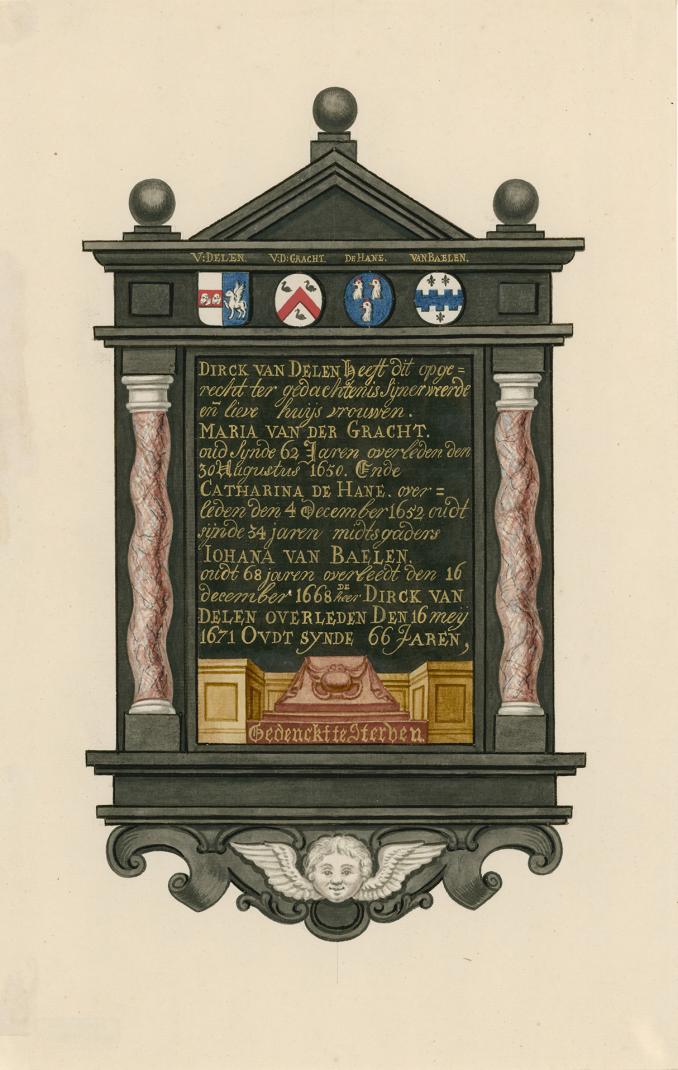 V: DELEN. V:D: GRACHT. DE HANE. VAN BAELEN.
DIRCK VAN DELEN heeft dit opge=
recht ter gedachtenis Sijner weerde
en̄ lieve huijs vrouwen.
MARIA VAN DER GRACHT.
oud Synde 62 Jaren overleden den
30 Augustus 1650. Ende
CATHARINA DE HANE. over=
leden den 4 December 1652 oudt
sijnde 34 jaren midtsgaders
IOHANA VAN BAELEN,
oudt 68 jaren overleedt den 16
december 1668 DE heer DIRCK VAN
DELEN OVERLEDEN DEN 16 meij
1671 OVDT SYNDE 66 JAREN,
Gedenckt te Sterven.